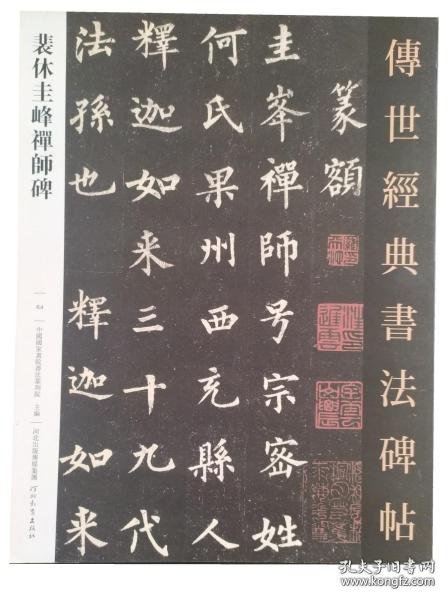 傳世經典書法碑帖
篆額
圭峯禪師号宗密姓
何氏果州西充縣人
釋迦如来三十九代
法孫也 釋迦如来
裴休圭峰禪師碑
84
中國國家畫院書法篆刻院 主編
河北出版傳媒集團
河北教育出版社
孔夫子旧书网
www.kongfz.com